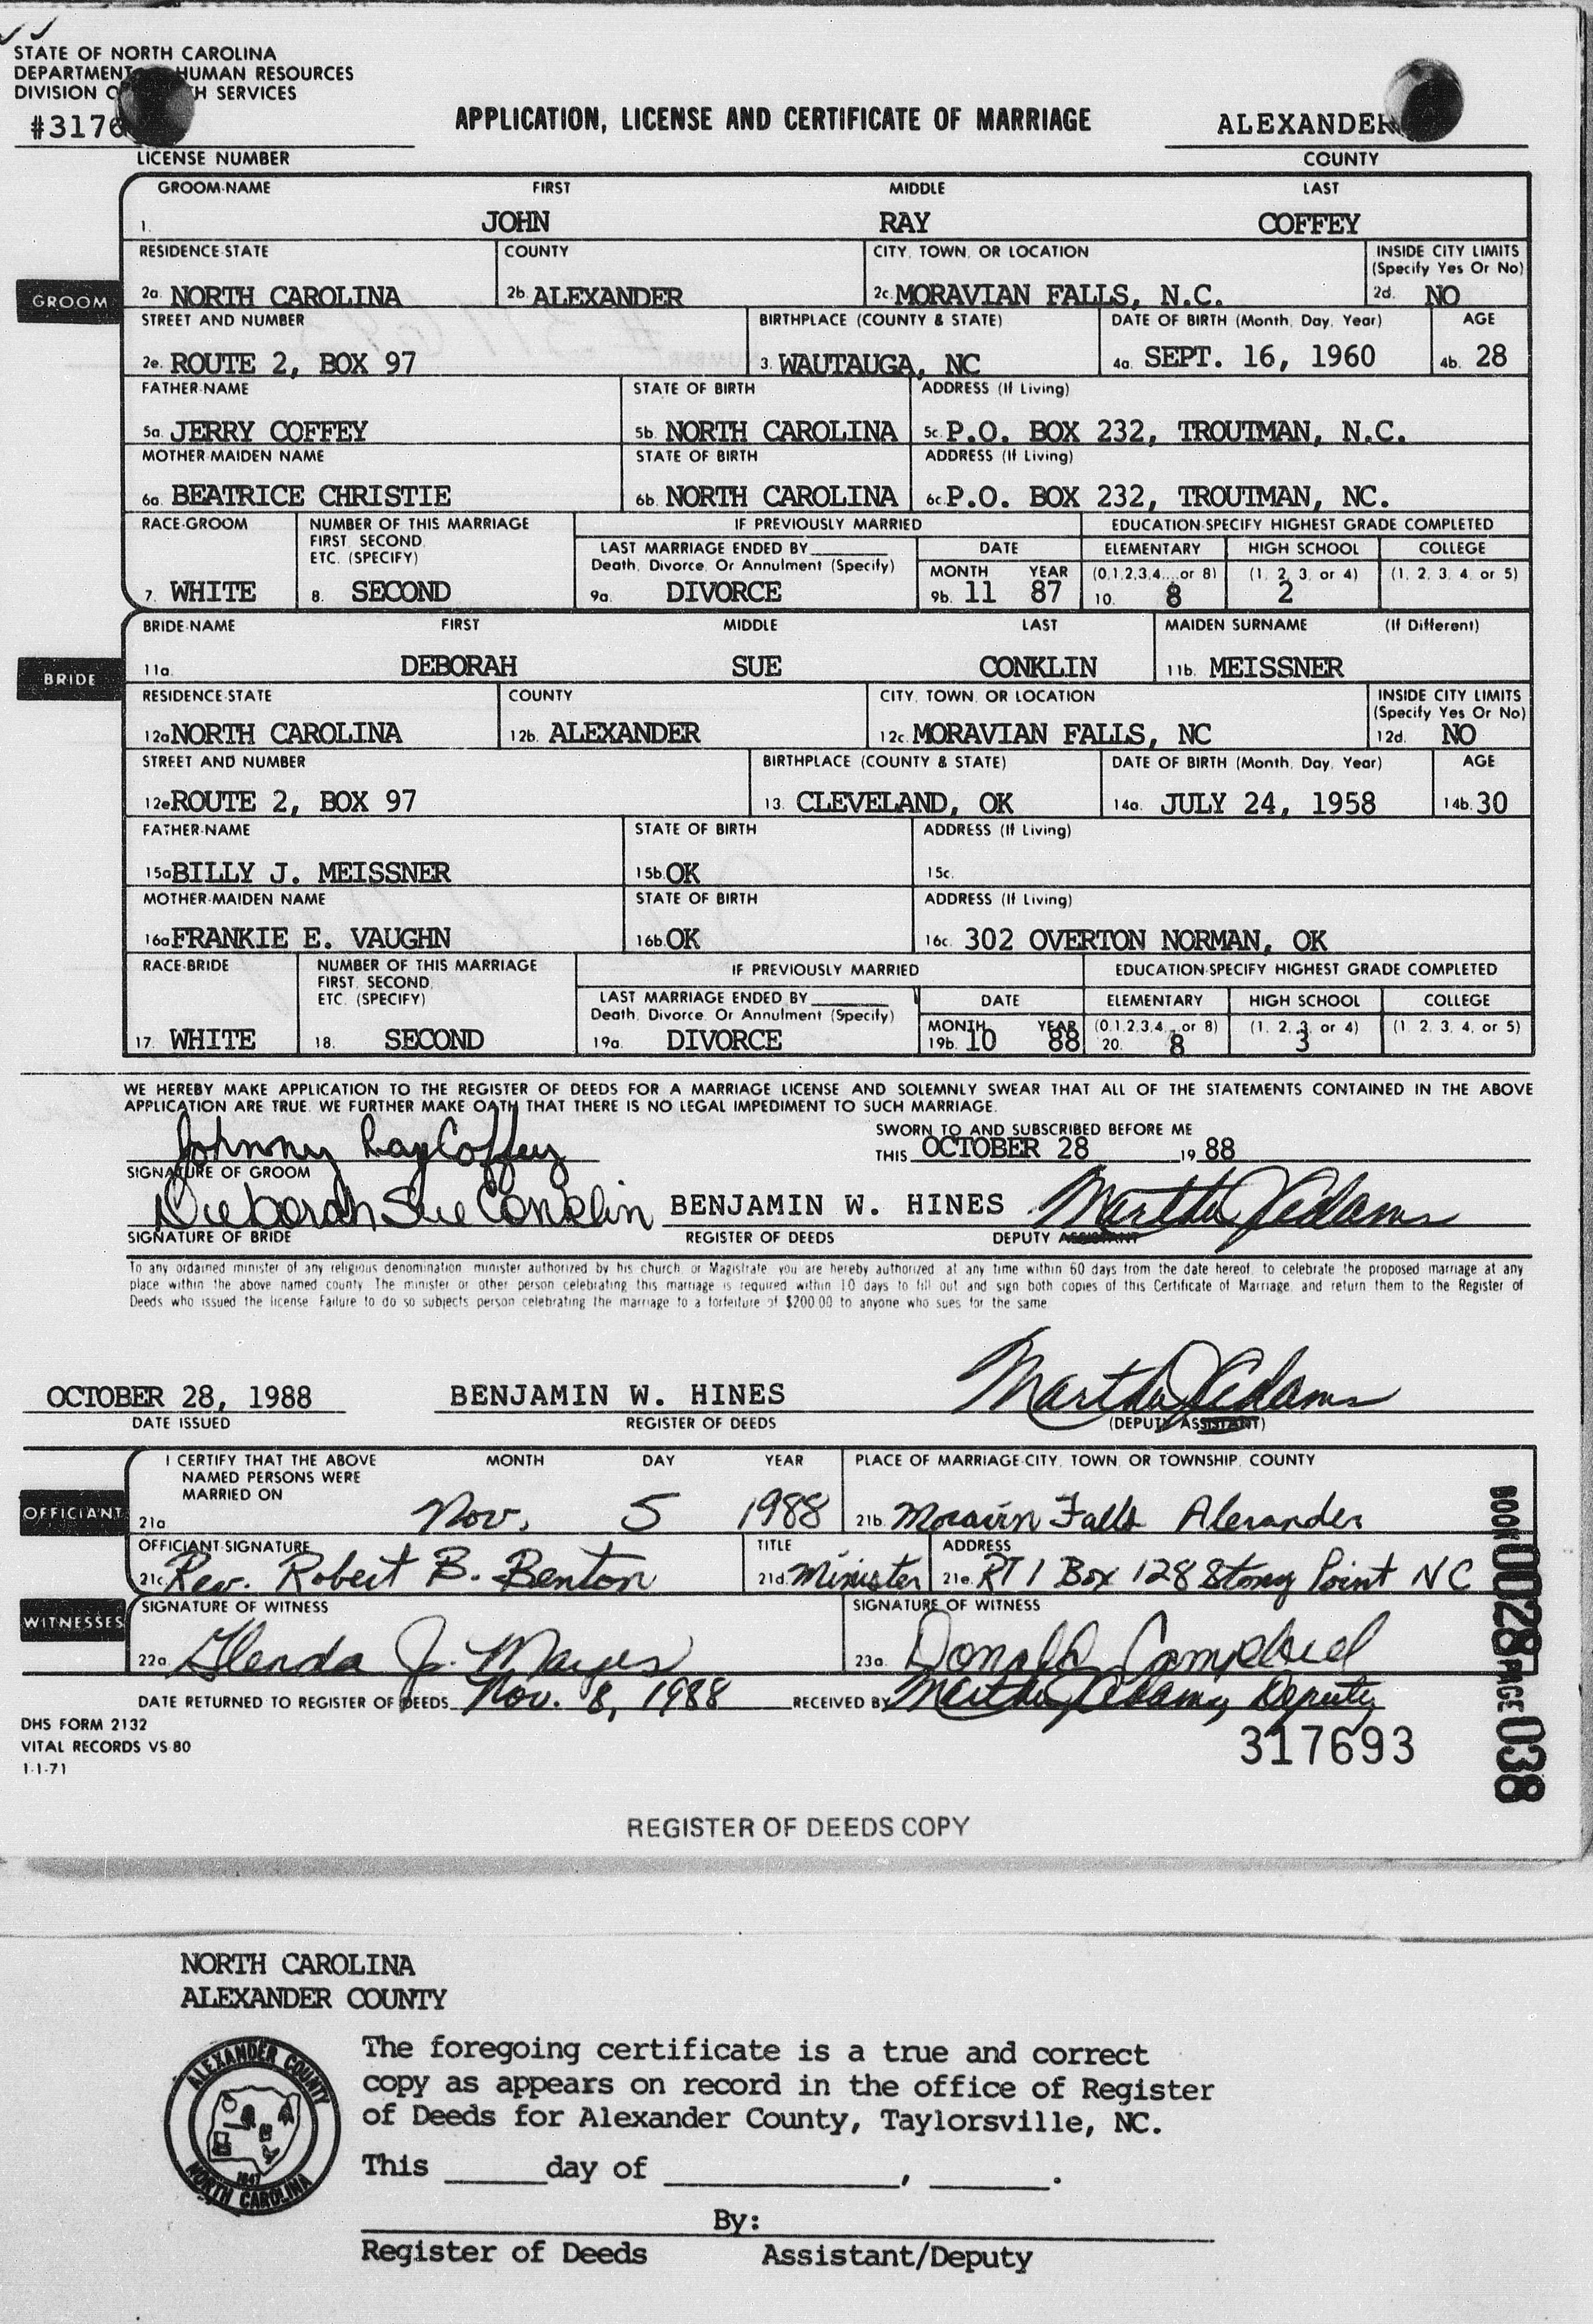 STATE OF NORTH CAROLINA
DEPARTMENT HUMAN RESOURCES
DIVISION H SERVICES
#3176
LICENSE NUMBER
APPLICATION, LICENSE AND CERTIFICATE OF MARRIAGE
ALEXANDER
COUNTY
GROOM-NAME FIRST MIDDLE LAST
1. JOHN RAY COFFEY
GROOM
RESIDENCE-STATE COUNTY CITY, TOWN, OR LOCATION INSIDE CITY LIMITS (Specify Yes Or No)
2a. NORTH CAROLINA 2b. ALEXANDER 2c. MORAVIAN FALLS, N.C. 2d. NO
STREET AND NUMBER BIRTHPLACE (COUNTY & STATE) DATE OF BIRTH (Month, Day, Year) AGE
2e. ROUTE 2, BOX 97 3. WAUTAUGA, NC 4a. SEPT. 16, 1960 4b. 28
FATHER-NAME STATE OF BIRTH ADDRESS (If Living)
5a. JERRY COFFEY 5b. NORTH CAROLINA 5c. P.O. BOX 232, TROUTMAN, N.C.
MOTHER-MAIDEN NAME STATE OF BIRTH ADDRESS (If Living)
6a. BEATRICE CHRISTIE 6b. NORTH CAROLINA 6c. P.O. BOX 232, TROUTMAN, NC.
RACE-GROOM NUMBER OF THIS MARRIAGE IF PREVIOUSLY MARRIED EDUCATION-SPECIFY HIGHEST GRADE COMPLETED
FIRST, SECOND, LAST MARRIAGE ENDED BY DATE ELEMENTARY HIGH SCHOOL COLLEGE
ETC. (SPECIFY) Death, Divorce, Or Annulment (Specify) MONTH YEAR (0,1,2,3,4....or 8) (1, 2, 3, or 4) (1, 2, 3, 4, or 5)
7. WHITE 8. SECOND 9a. DIVORCE 9b. 11 87 10. 8 2
BRIDE-NAME FIRST MIDDLE LAST MAIDEN SURNAME (If Different)
11a. DEBORAH SUE CONKLIN 11b. MEISSNER
BRIDE
RESIDENCE-STATE COUNTY CITY, TOWN, OR LOCATION INSIDE CITY LIMITS (Specify Yes Or No)
12a NORTH CAROLINA 12b. ALEXANDER 12c. MORAVIAN FALLS, NC 12d. NO
STREET AND NUMBER BIRTHPLACE (COUNTY & STATE) DATE OF BIRTH (Month, Day, Year) AGE
12e ROUTE 2, BOX 97 13. CLEVELAND, OK 14a. JULY 24, 1958 14b. 30
FATHER-NAME STATE OF BIRTH ADDRESS (If Living)
15a BILLY J. MEISSNER 15b. OK 15c.
MOTHER-MAIDEN NAME STATE OF BIRTH ADDRESS (If Living)
16a FRANKIE E. VAUGHN 16b. OK 16c. 302 OVERTON NORMAN, OK
RACE-BRIDE NUMBER OF THIS MARRIAGE IF PREVIOUSLY MARRIED EDUCATION-SPECIFY HIGHEST GRADE COMPLETED
FIRST, SECOND, LAST MARRIAGE ENDED BY DATE ELEMENTARY HIGH SCHOOL COLLEGE
ETC. (SPECIFY) Death, Divorce, Or Annulment (Specify) MONTH YEAR (0,1,2,3,4....or 8) (1, 2, 3, or 4) (1, 2, 3, 4, or 5)
17. WHITE 18. SECOND 19a. DIVORCE 19b. 10 88 20. 8 3
WE HEREBY MAKE APPLICATION TO THE REGISTER OF DEEDS FOR A MARRIAGE LICENSE AND SOLEMNLY SWEAR THAT ALL OF THE STATEMENTS CONTAINED IN THE ABOVE
APPLICATION ARE TRUE. WE FURTHER MAKE OATH THAT THERE IS NO LEGAL IMPEDIMENT TO SUCH MARRIAGE.
Johnny Ray Coffey
SIGNATURE OF GROOM
SWORN TO AND SUBSCRIBED BEFORE ME
THIS OCTOBER 28 19 88
Deborah Sue Conklin BENJAMIN W. HINES Martha J Adams
SIGNATURE OF BRIDE REGISTER OF DEEDS DEPUTY ASSISTANT
To any ordained minister of any religious denomination, minister authorized by his church, or Magistrate, you are hereby authorized, at any time within 60 days from the date hereof, to celebrate the proposed marriage at any
place within the above named county. The minister or other person celebrating this marriage is required within 10 days to fill out and sign both copies of this Certificate of Marriage, and return them to the Register of
Deeds who issued the license. Failure to do so subjects person celebrating the marriage to a forfeiture of $200.00 to anyone who sues for the same.
OCTOBER 28, 1988 BENJAMIN W. HINES Martha J Adams
DATE ISSUED REGISTER OF DEEDS (DEPUTY ASSISTANT)
OFFICIANT
I CERTIFY THAT THE ABOVE MONTH DAY YEAR PLACE OF MARRIAGE-CITY, TOWN, OR TOWNSHIP, COUNTY
NAMED PERSONS WERE
MARRIED ON
21a Nov. 5 1988 21b. Moravin Falls Alexander
OFFICIANT-SIGNATURE TITLE ADDRESS
21c. Rev. Robert B. Benton 21d. Minister 21e. RT 1 Box 128 Stony Point NC
WITNESSES
SIGNATURE OF WITNESS SIGNATURE OF WITNESS
22a. Glenda J. Mayes 23a. Donald Campbell
DATE RETURNED TO REGISTER OF DEEDS Nov. 8, 1988 RECEIVED BY Martha J Adams, Deputy
DHS FORM 2132
VITAL RECORDS VS-80
1-1-71
317693
BOOK 0028 PAGE 038
REGISTER OF DEEDS COPY
NORTH CAROLINA
ALEXANDER COUNTY
ALEXANDER COUNTY
1847
NORTH CAROLINA
The foregoing certificate is a true and correct
copy as appears on record in the office of Register
of Deeds for Alexander County, Taylorsville, NC.
This _____ day of __________, _____.
By:
Register of Deeds Assistant/Deputy